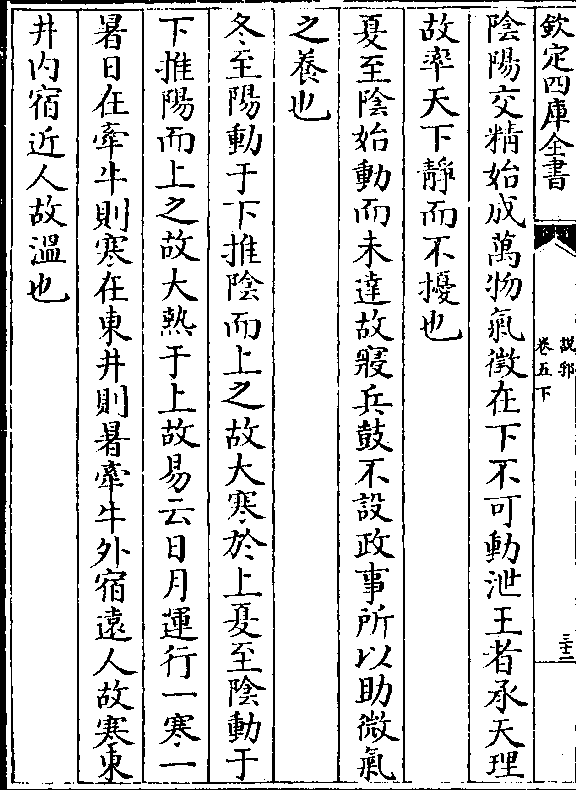 欽定四庫全書
說郛
卷五下
三十二
陰陽交精始成萬物氣徵在下不可動泄王者承天理
故率天下靜而不擾也
夏至陰始動而未達故寢兵鼓不設政事所以助微氣
之養也
冬至陽動于下推陰而上之故大寒於上夏至陰動于
下推陽而上之故大熱于上故易云日月運行一寒一
暑日在牽牛則寒在東井則暑牽牛外宿遠人故寒東
井内宿近人故溫也